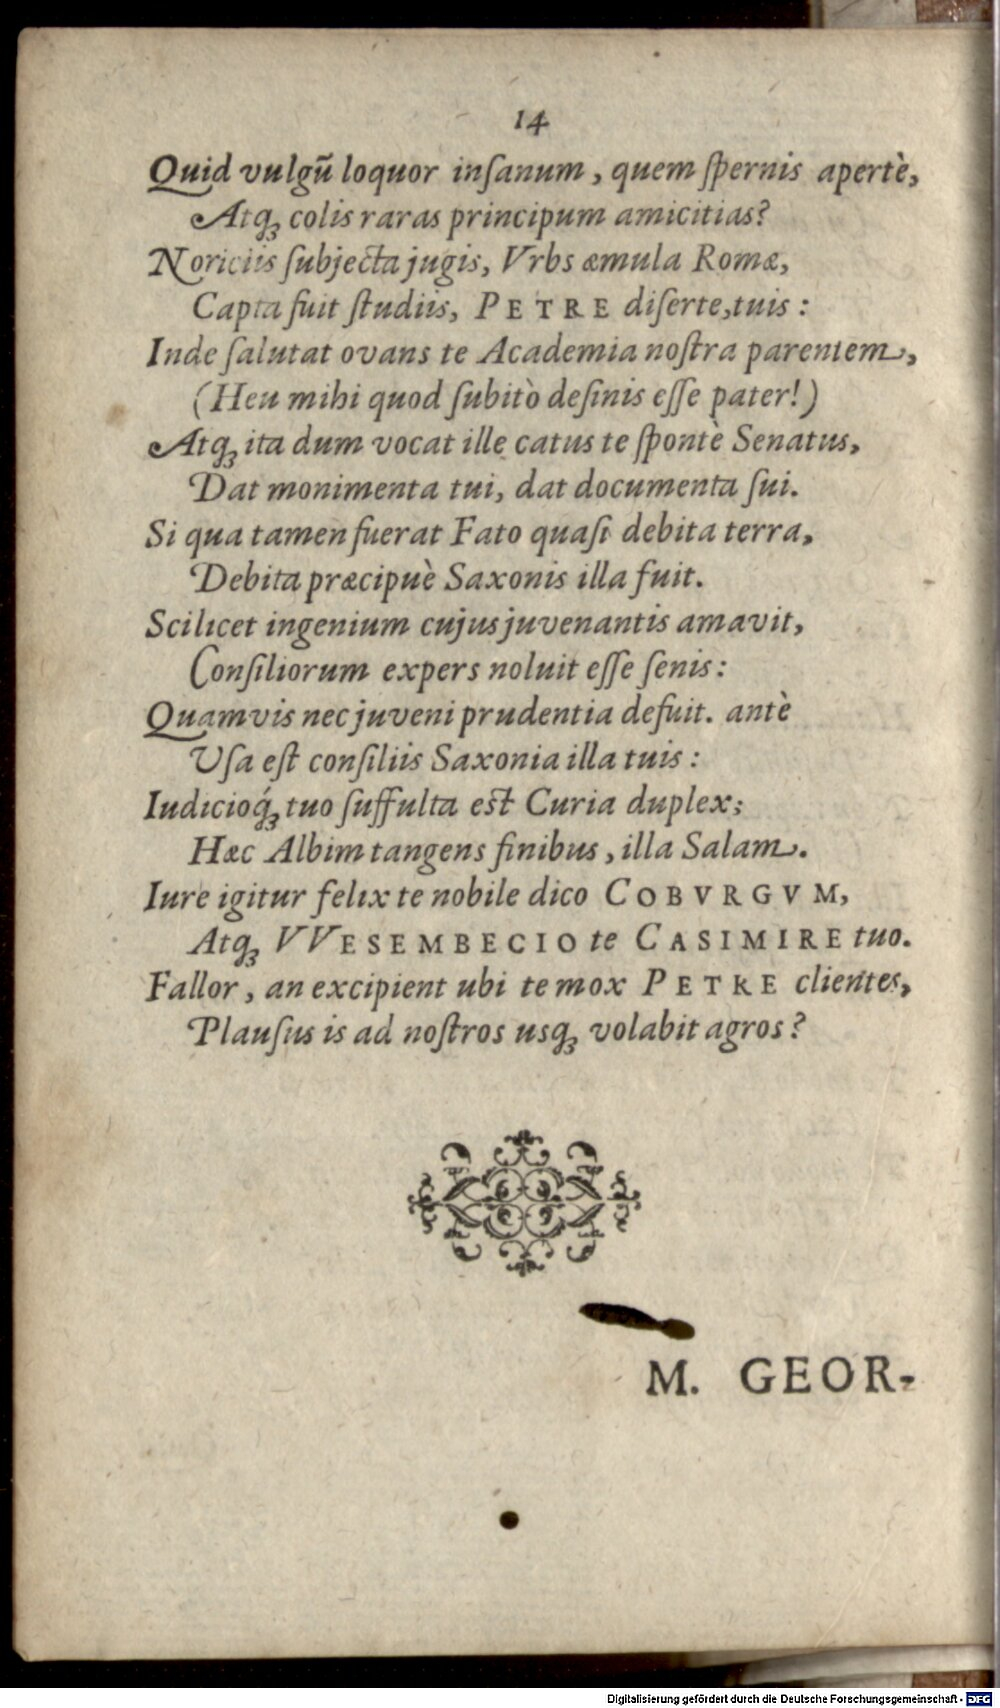 14
Quid vulgū loquor inſanum, quem ſpernis apertè,
Atq́ꝫ colis raras principum amicitias?
Noriciis ſubjecta jugis, Vrbs æmula Romæ,
Capta fuit ſtudiis, PETRE diſerte, tuis:
Inde ſalutat ovans te Academia noſtra parentem,
(Heu mihi quod ſubitò deſinis eſſe pater!)
Atqꝫ ita dum vocat ille catus te ſpontè Senatus,
Dat monimenta tui, dat documenta ſui.
Si qua tamen fuerat Fato quaſi debita terra,
Debita præcipuè Saxonis illa fuit.
Scilicet ingenium cujus juvenantis amavit,
Conſiliorum expers noluit eſſe ſenis:
Quamvis nec juveni prudentia defuit. antè
Uſa eſt conſiliis Saxonia illa tuis:
Iudicioq́ꝫ tuo ſuffulta eſt Curia duplex;
Hæc Albim tangens finibus, illa Salam.
Iure igitur felix te nobile dico COBVRGVM,
Atqꝫ VVESEMBECIO te CASIMIRE tuo.
Fallor, an excipient ubi te mox PETRE clientes,
Plauſus is ad noſtros usqꝫ volabit agros?
M. GEOR-
Digitalisierung gefördert durch die Deutsche Forschungsgemeinschaft - DFG